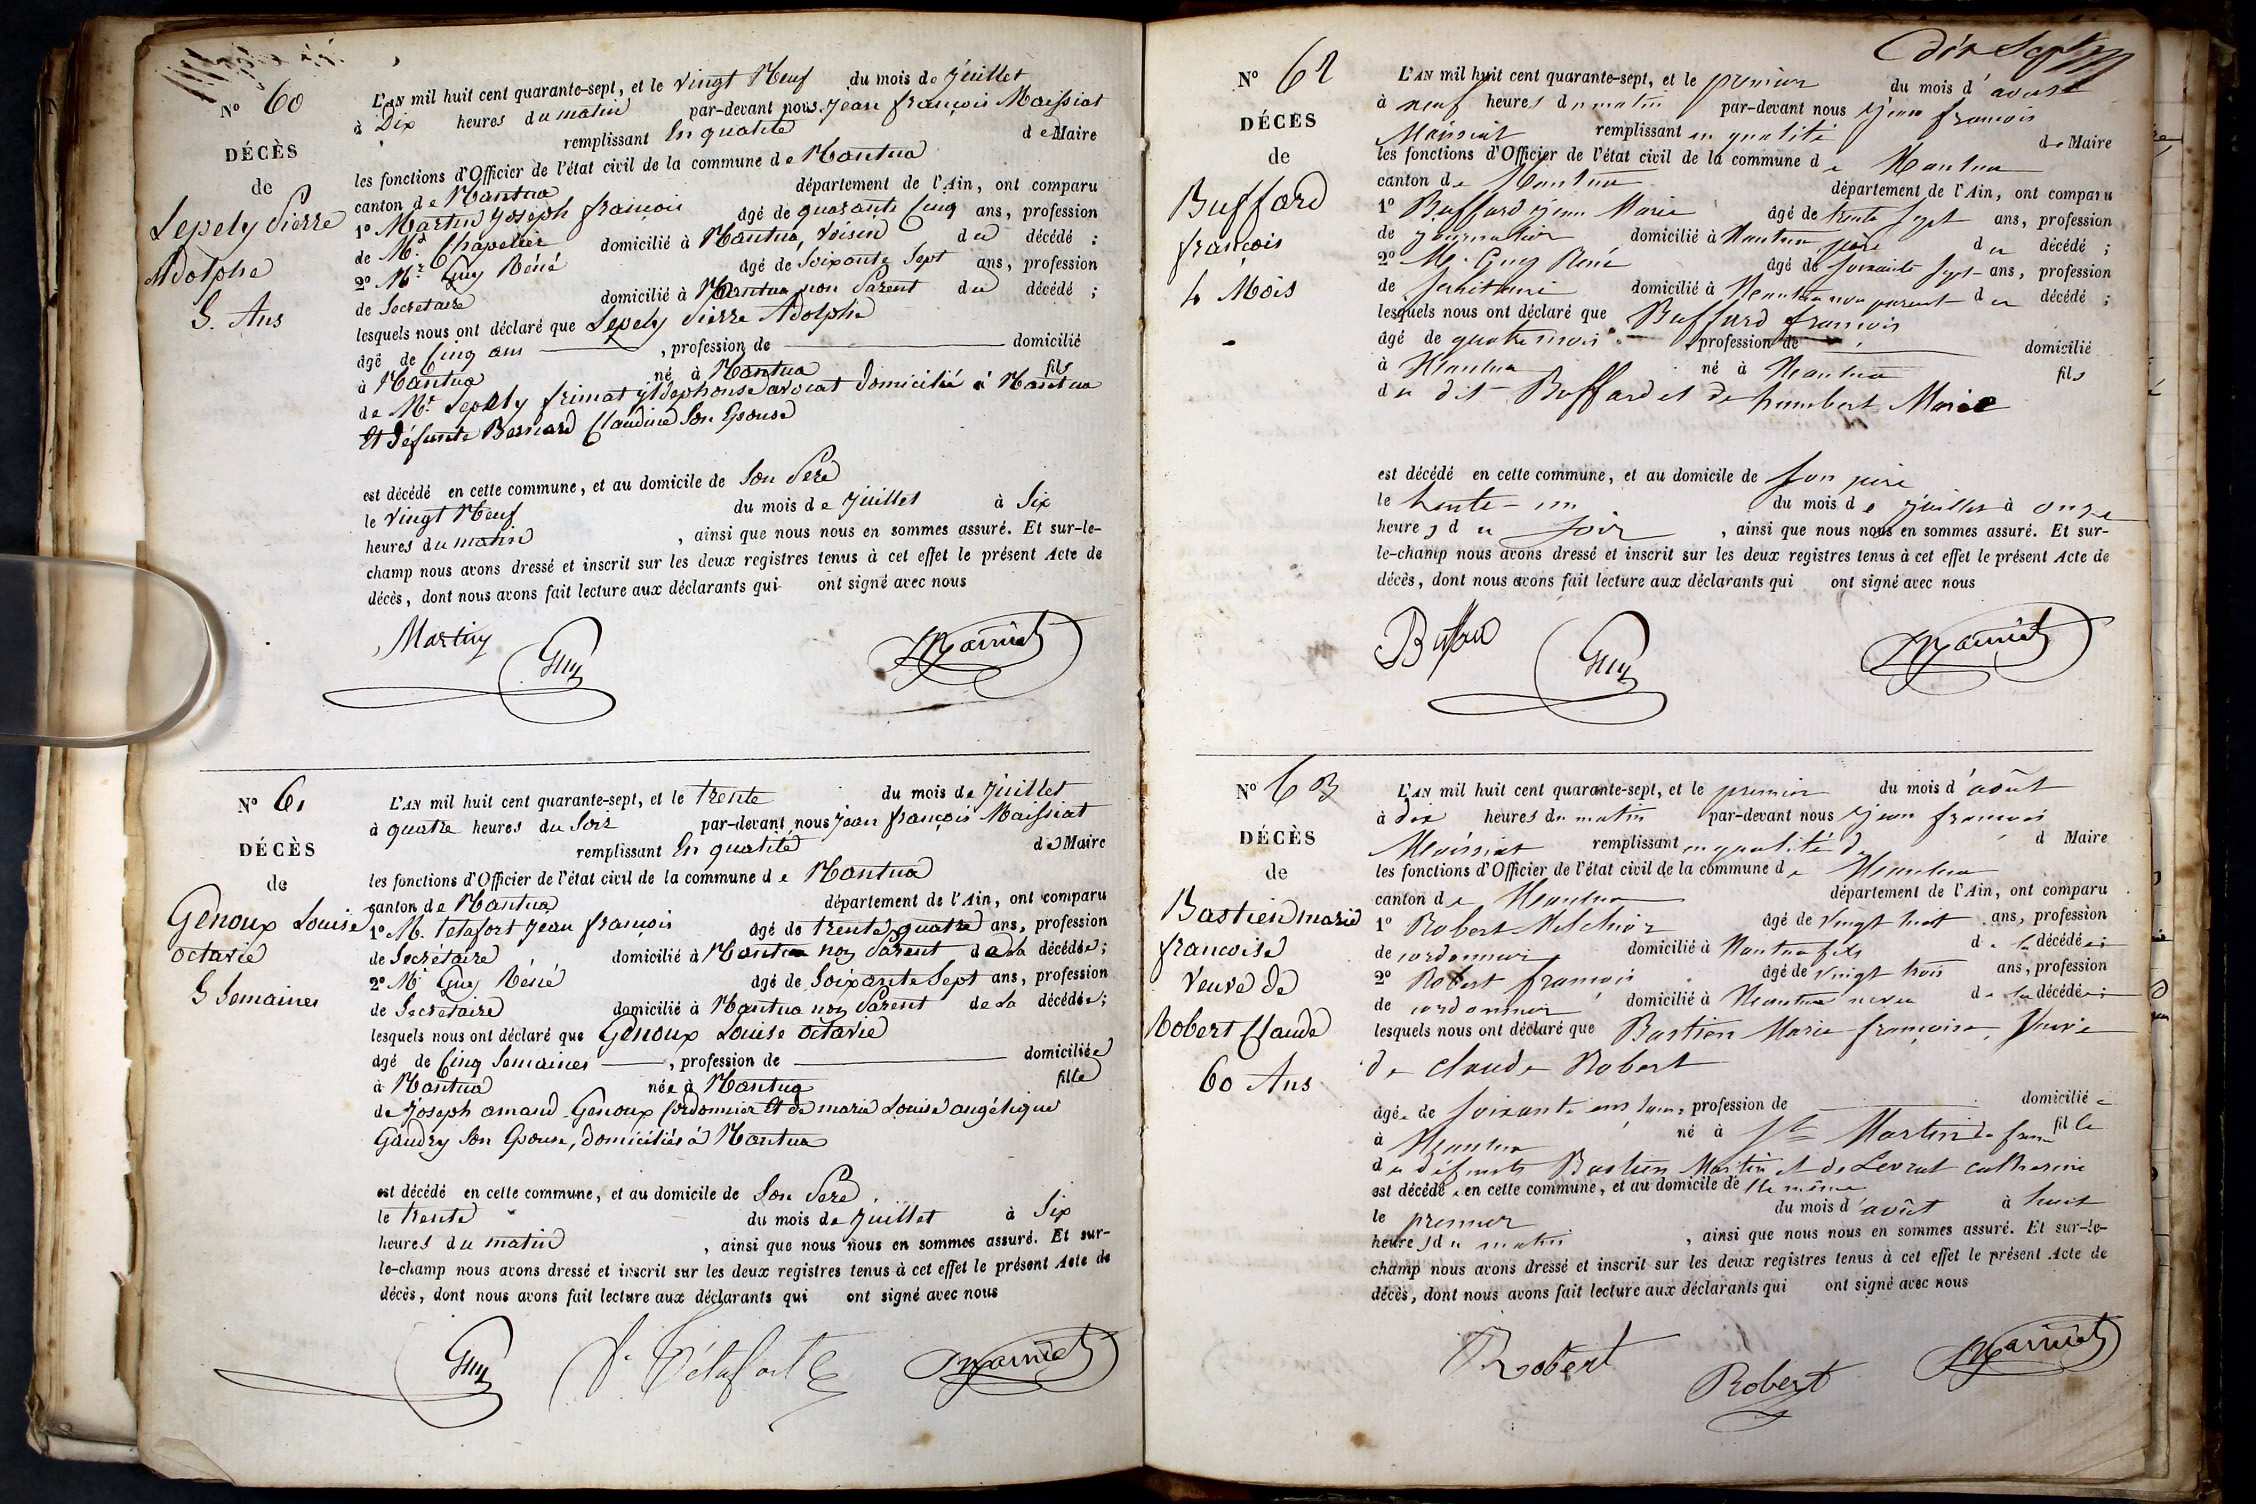 N° 60
DÉCÈS
de
Lepely Pierre
Adolphe
5. Ans
L'AN mil huit cent quarante-sept, et le vingt Neuf du mois de Juillet
à Dix heures du matin par-devant nous Jean françois Maissiat
remplissant En qualité de Maire
les fonctions d'Officier de l'état civil de la commune de Nantua
canton de Nantua département de l'Ain, ont comparu
1° Martin Joseph françois âgé de quarante Cinq ans, profession
de Md. Chapelier domicilié à Nantua, Voisin du décédé ;
2° Mr. Guy Réné âgé de Soixante Sept ans, profession
de Secretaire domicilié à Nantua non Parent du décédé ;
lesquels nous ont déclaré que Lepely Pierre Adolphe
âgé de Cinq ans , profession de domicilié
à Nantua né à Nantua fils
de Mr Lepely frimat yldephonse avocat domicilié à Nantua
Et Défunte Bernard Claudine Son Epouse
est décédé en cette commune, et au domicile de Son Pere
le vingt Neuf du mois de Juillet à Six
heures du matin , ainsi que nous nous en sommes assuré. Et sur-le-
champ nous avons dressé et inscrit sur les deux registres tenus à cet effet le présent Acte de
décès, dont nous avons fait lecture aux déclarants qui ont signé avec nous
Martin Guy Maissiat
N° 61
DÉCÈS
de
Genoux Louise
octavie
5 Semaines
L'AN mil huit cent quarante-sept, et le trente du mois de Juillet
à quatre heures du Soir par-devant nous Jean françois Maissiat
remplissant En qualité de Maire
les fonctions d'Officier de l'état civil de la commune de Nantua
canton de Nantua département de l'Ain, ont comparu
1° M. Tetafort Jean françois âgé de trente quatre ans, profession
de Secrétaire domicilié à Nantua non Parent de la décédée;
2° Mr Guy Réné âgé de Soixante Sept ans, profession
de Secretaire domicilié à Nantua non Parent de La décédée;
lesquels nous ont déclaré que Genoux Louise octavie
âgé de Cinq Semaines , profession de domiciliée
à Nantua née à Nantua fille
de Joseph amand Genoux Cordonnier Et de marie Louise angélique
Gaudry Son Epouse, domiciliés à Nantua
est décédé en cette commune, et au domicile de Son Pere
le trente du mois de Juillet à Six
heures du matin , ainsi que nous nous en sommes assuré. Et sur-
le-champ nous avons dressé et inscrit sur les deux registres tenus à cet effet le présent Acte de
décès, dont nous avons fait lecture aux déclarants qui ont signé avec nous
Guy Tétafort Maissiat
dix Sept
N° 62
DÉCÈS
de
Buffard
françois
4 Mois
L'AN mil huit cent quarante-sept, et le premier du mois d'aoust
à neuf heures du matin par-devant nous jean francois
Maissiat remplissant en qualité de Maire
les fonctions d'Officier de l'état civil de la commune de Nantua
canton de Nantua département de l'Ain, ont comparu
1° Buffard jean Marie âgé de trente sept ans, profession
de journalier domicilié à Nantua père du décédé ;
2° Mr. Guy René âgé de soixante sept ans, profession
de secrétaire domicilié à Nantua non parent du décédé ;
lesquels nous ont déclaré que Buffard francois
âgé de quatre mois profession de domicilié
à Nantua né à Nantua fils
du dit Buffard et de humbert Marie
est décédé en cette commune, et au domicile de son père
le trente-un du mois de juillet à onze
heures du soir , ainsi que nous nous en sommes assuré. Et sur-
le-champ nous avons dressé et inscrit sur les deux registres tenus à cet effet le présent Acte de
décès, dont nous avons fait lecture aux déclarants qui ont signé avec nous
Guy Maissiat
N° 63
DÉCÈS
de
Bastien marie
francoise
Veuve de
Robert Claude
60 Ans
L'AN mil huit cent quarante-sept, et le premier du mois d'août
à dix heures du matin par-devant nous jean francois
Maissiat remplissant en qualité de d Maire
les fonctions d'Officier de l'état civil de la commune de Nantua
canton de Nantua département de l'Ain, ont comparu
1° Robert Melchior âgé de vingt huit ans, profession
de cordonnier domicilié à Nantua fils de la décédée ;
2° Robert francois âgé de vingt trois ans, profession
de cordonnier domicilié à Nantua neveu de la décédée ;
lesquels nous ont déclaré que Bastien Marie françoise, Veuve
de Claude Robert
âgée de soixante ans , profession de domiciliée
à Nantua né à St Martin du frene fille
de défunts Bastien Martin et de Levrat catherine
est décédée en cette commune, et au domicile de Elle même
le premier du mois d'août à huit
heures du matin , ainsi que nous nous en sommes assuré. Et sur-le-
champ nous avons dressé et inscrit sur les deux registres tenus à cet effet le présent Acte de
décès, dont nous avons fait lecture aux déclarants qui ont signé avec nous
Robert Robert Maissiat